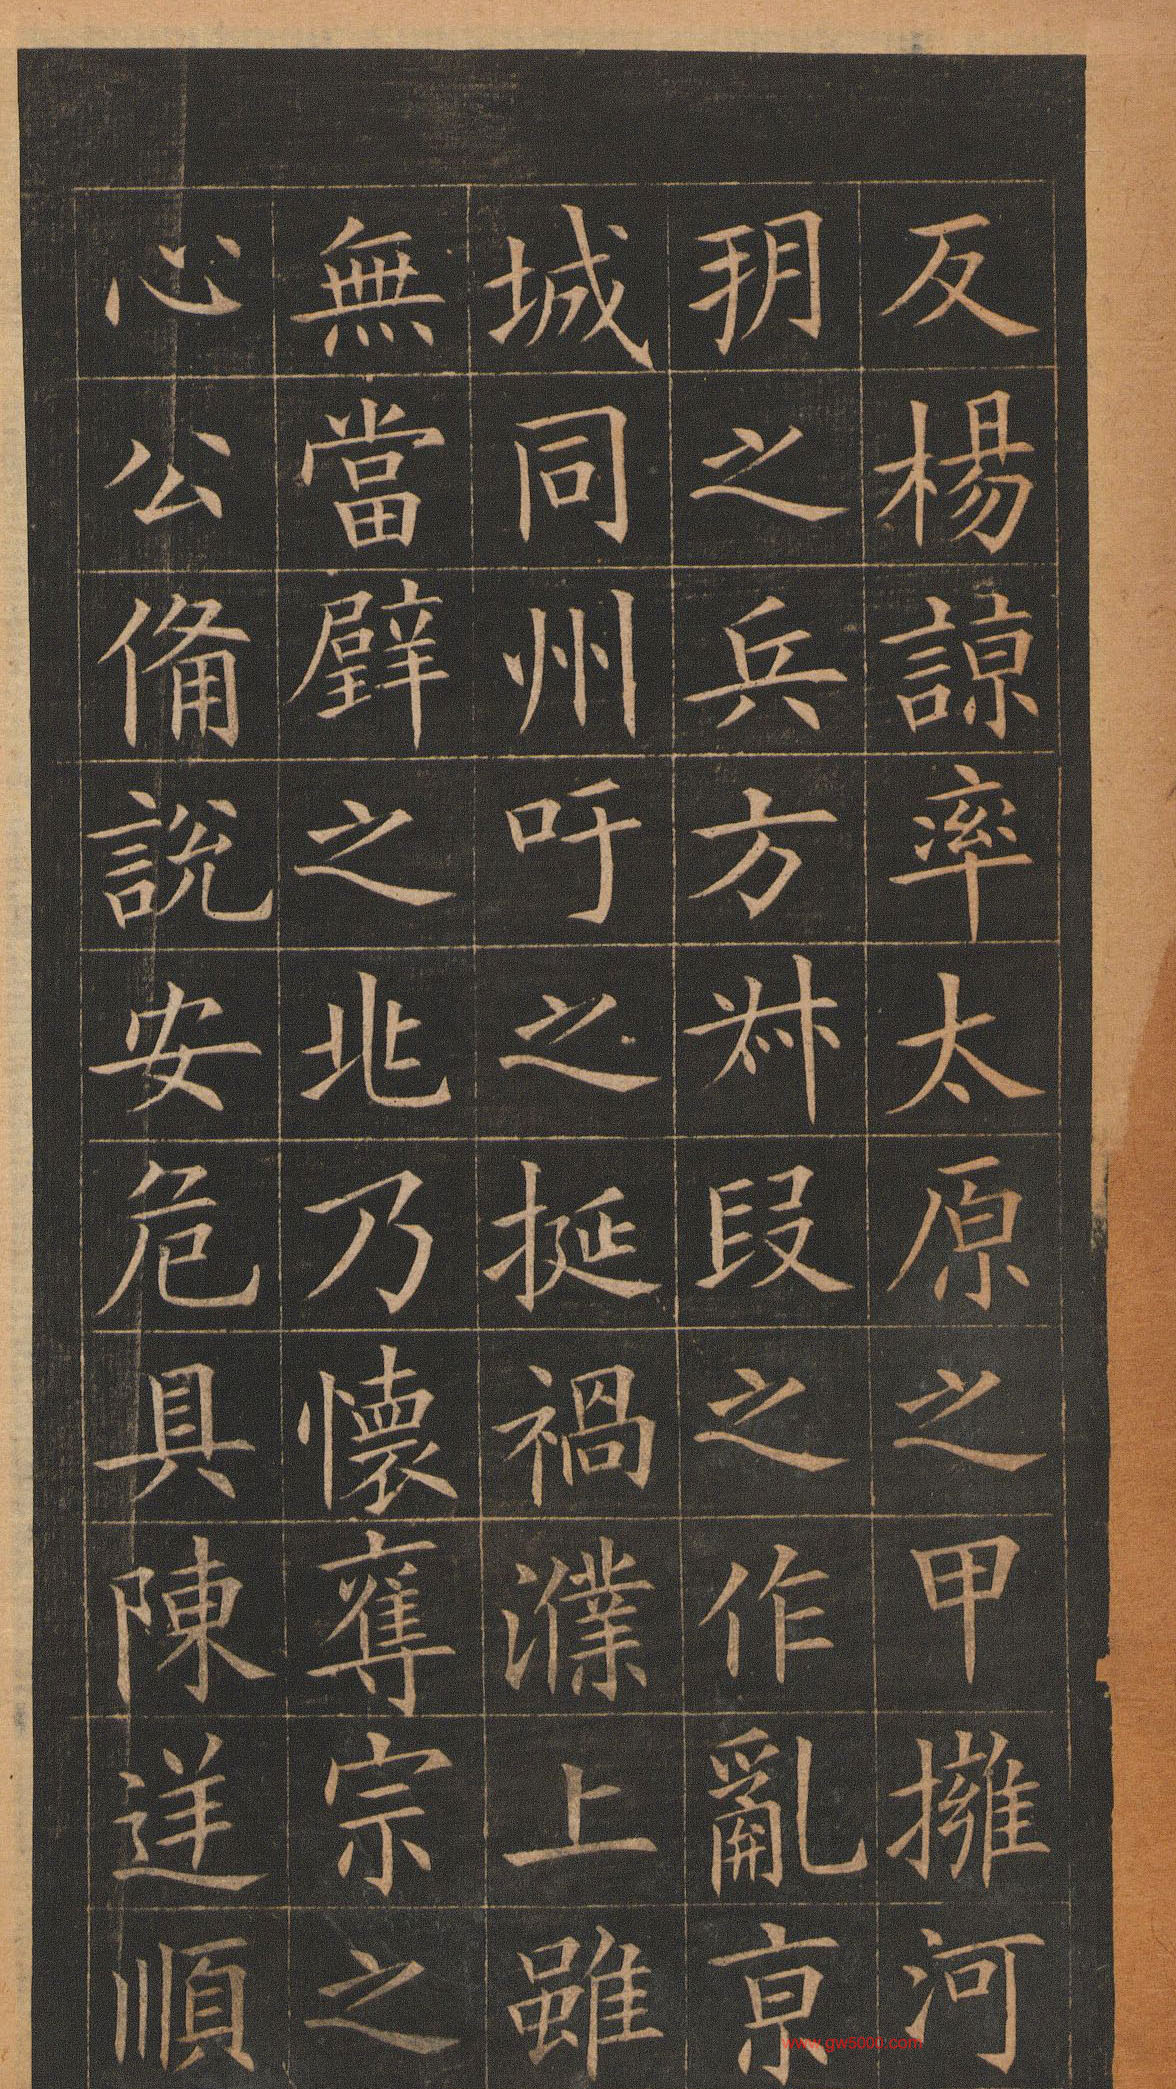 反楊諒率太原之甲擁河
玥之兵方叔段之作亂京
城同州吁之挻禍濮上雖
無當璧之兆乃懷奪宗之
心公備説安危具陳逆順
www.gw5000.com